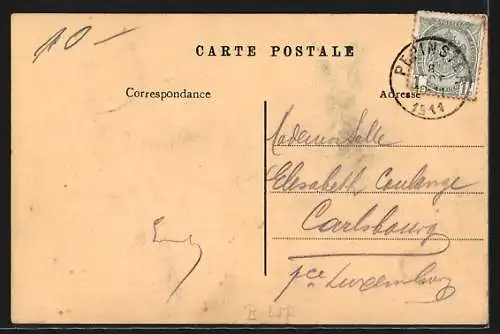 CARTE POSTALE
Correspondance
Adresse
PEPINST
1911
Mademoiselle
Elisabeth Coulange
Carlsbourg
pce Luxembourg